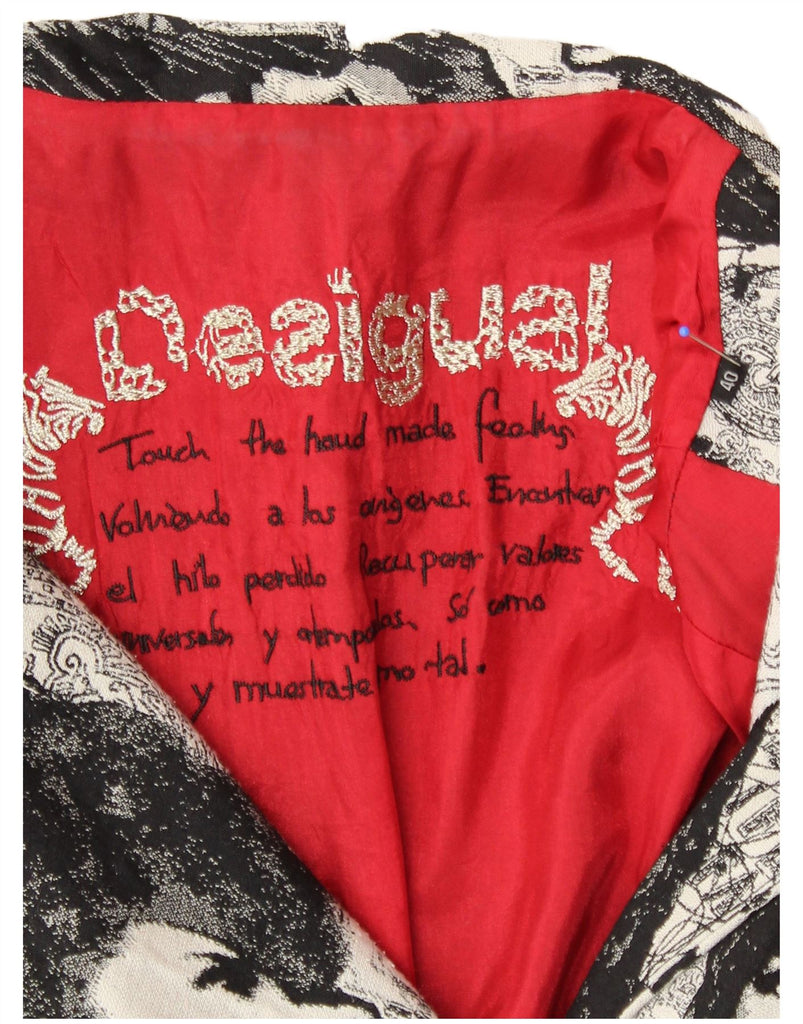 Desigual
40
Touch the hand made feeling.
Volviendo a los orígenes. Encontrar
el hilo perdido. Recuperar valores
universales y atemporales. Sé como
y muestrate mo tal.